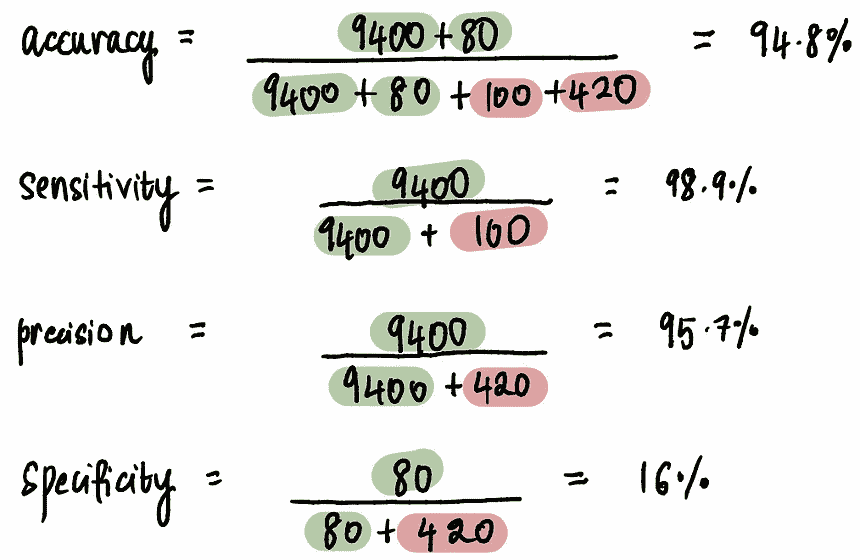 accuracy = 9400 + 80 / 9400 + 80 + 100 + 420 = 94.8%
sensitivity = 9400 / 9400 + 100 = 98.9%
precision = 9400 / 9400 + 420 = 95.7%
specificity = 80 / 80 + 420 = 16%